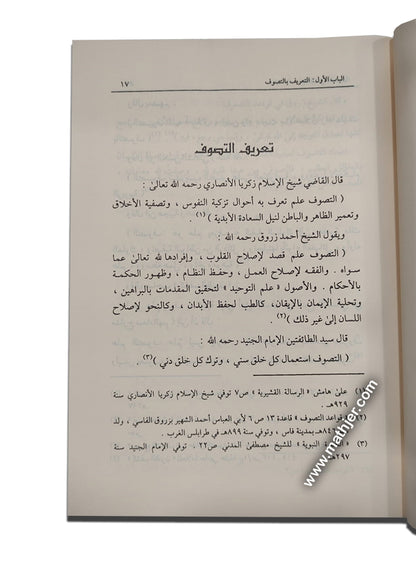 الباب الأول : التعريف بالتصوف
١٧
تعريف التصوف
قال القاضي شيخ الإسلام زكريا الأنصاري رحمه الله تعالىٰ :
( التصوف علم تعرف به أحوال تزكية النفوس ، وتصفية الأخلاق
وتعمير الظاهر والباطن لنيل السعادة الأبدية ) (١) .
ويقول الشيخ أحمد زروق رحمه الله :
( التصوف علم قصد لإصلاح القلوب ، وإفرادها لله تعالىٰ عما
سواه . والفقه لإصلاح العمل ، وحفظ النظام ، وظهور الحكمة
بالأحكام . والأصول « علم التوحيد » لتحقيق المقدمات بالبراهين ،
وتحلية الإيمان بالإيقان، كالطب لحفظ الأبدان ، وكالنحو لإصلاح
اللسان إلىٰ غير ذلك ) (٢) .
قال سيد الطائفتين الإمام الجنيد رحمه الله :
( التصوف استعمال كل خلق سني ، وترك كل خلق دني ) (٣) .
(١) علىٰ هامش « الرسالة القشيرية » ص٧ توفي شيخ الإسلام زكريا الأنصاري سنة
٩٢٩هـ .
(٢) « قواعد التصوف » قاعدة ١٣ ص ٦ لأبي العباس أحمد الشهير بزروق الفاسي ، ولد
سنة ٨٤٦هـ بمدينة فاس ، وتوفي سنة ٨٩٩هـ في طرابلس الغرب .
(٣) النبوية » للشيخ مصطفىٰ المدني ص٢٢ . توفي الإمام الجنيد سنة
٢٩٧هـ
www.mathjer.com